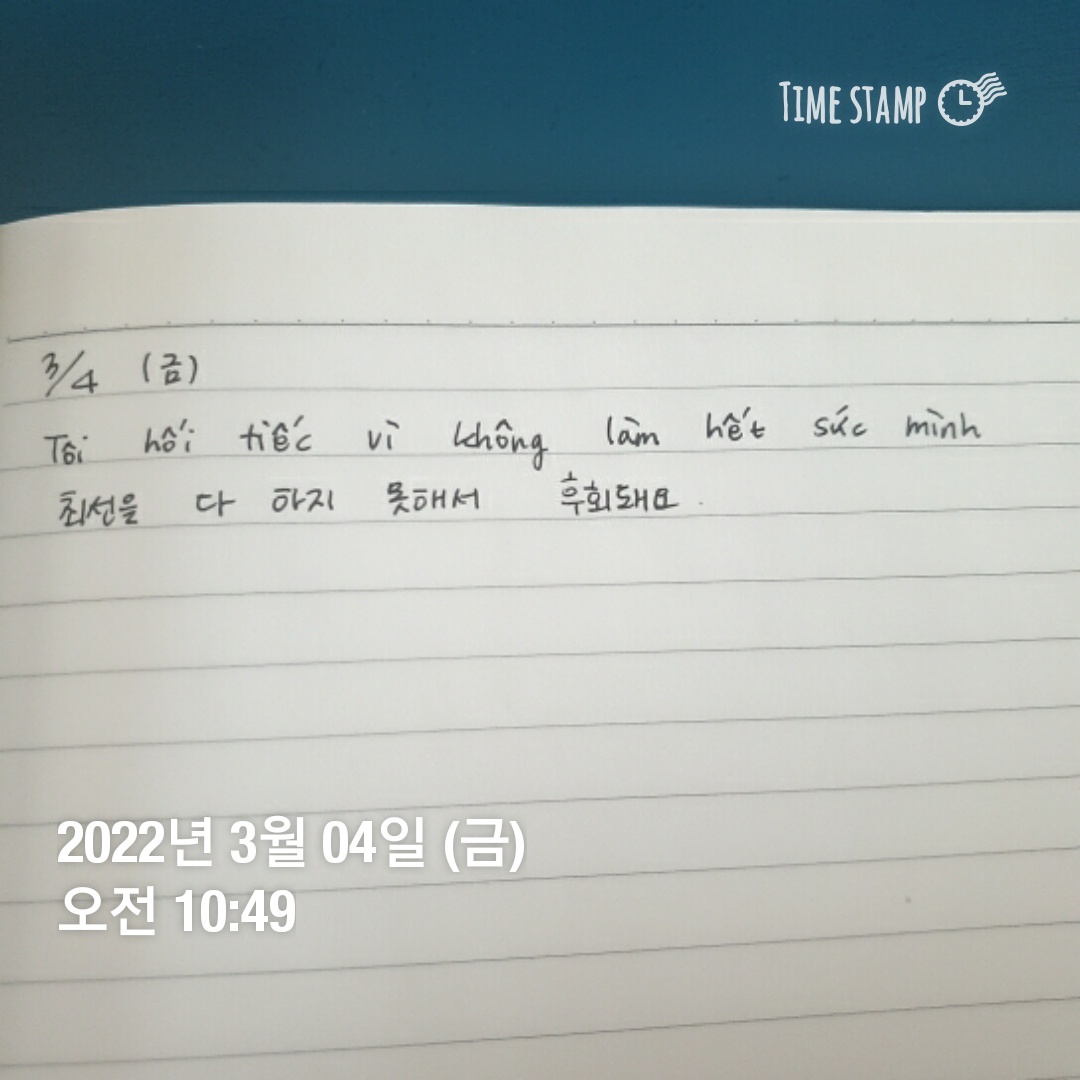 TIME STAMP
3/4 (금)
Tôi hối tiếc vì không làm hết sức mình
최선을 다 하지 못해서 후회돼요.
2022년 3월 04일 (금)
오전 10:49